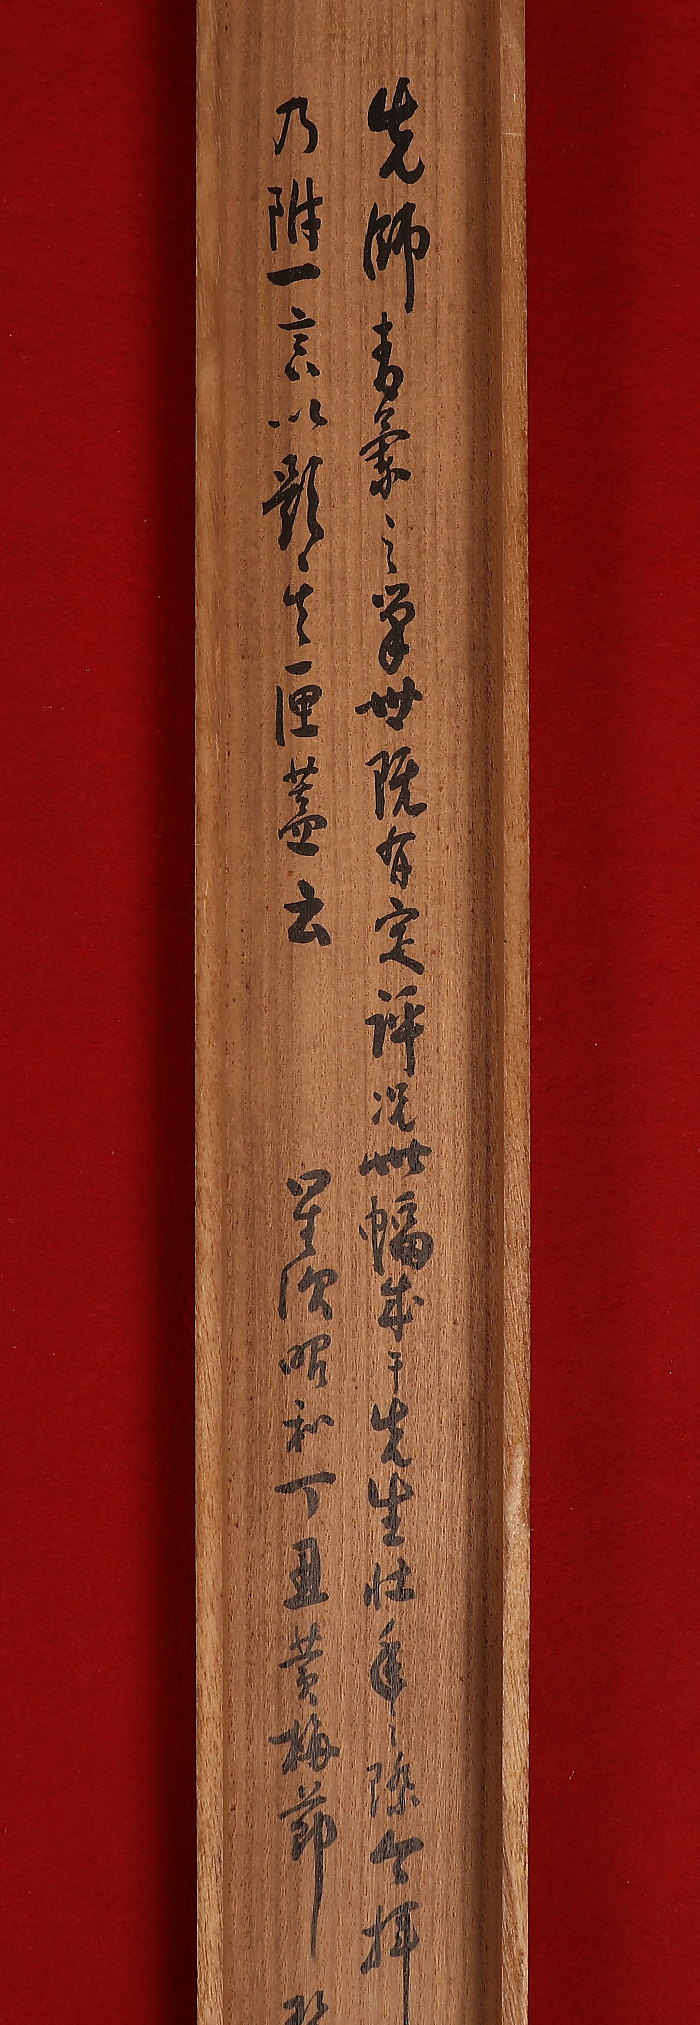 先師青之筆世既有定評況此幅成于先生壮年之際今拝
乃附一言以題其匣蓋云　星次昭和丁丑黄梅節